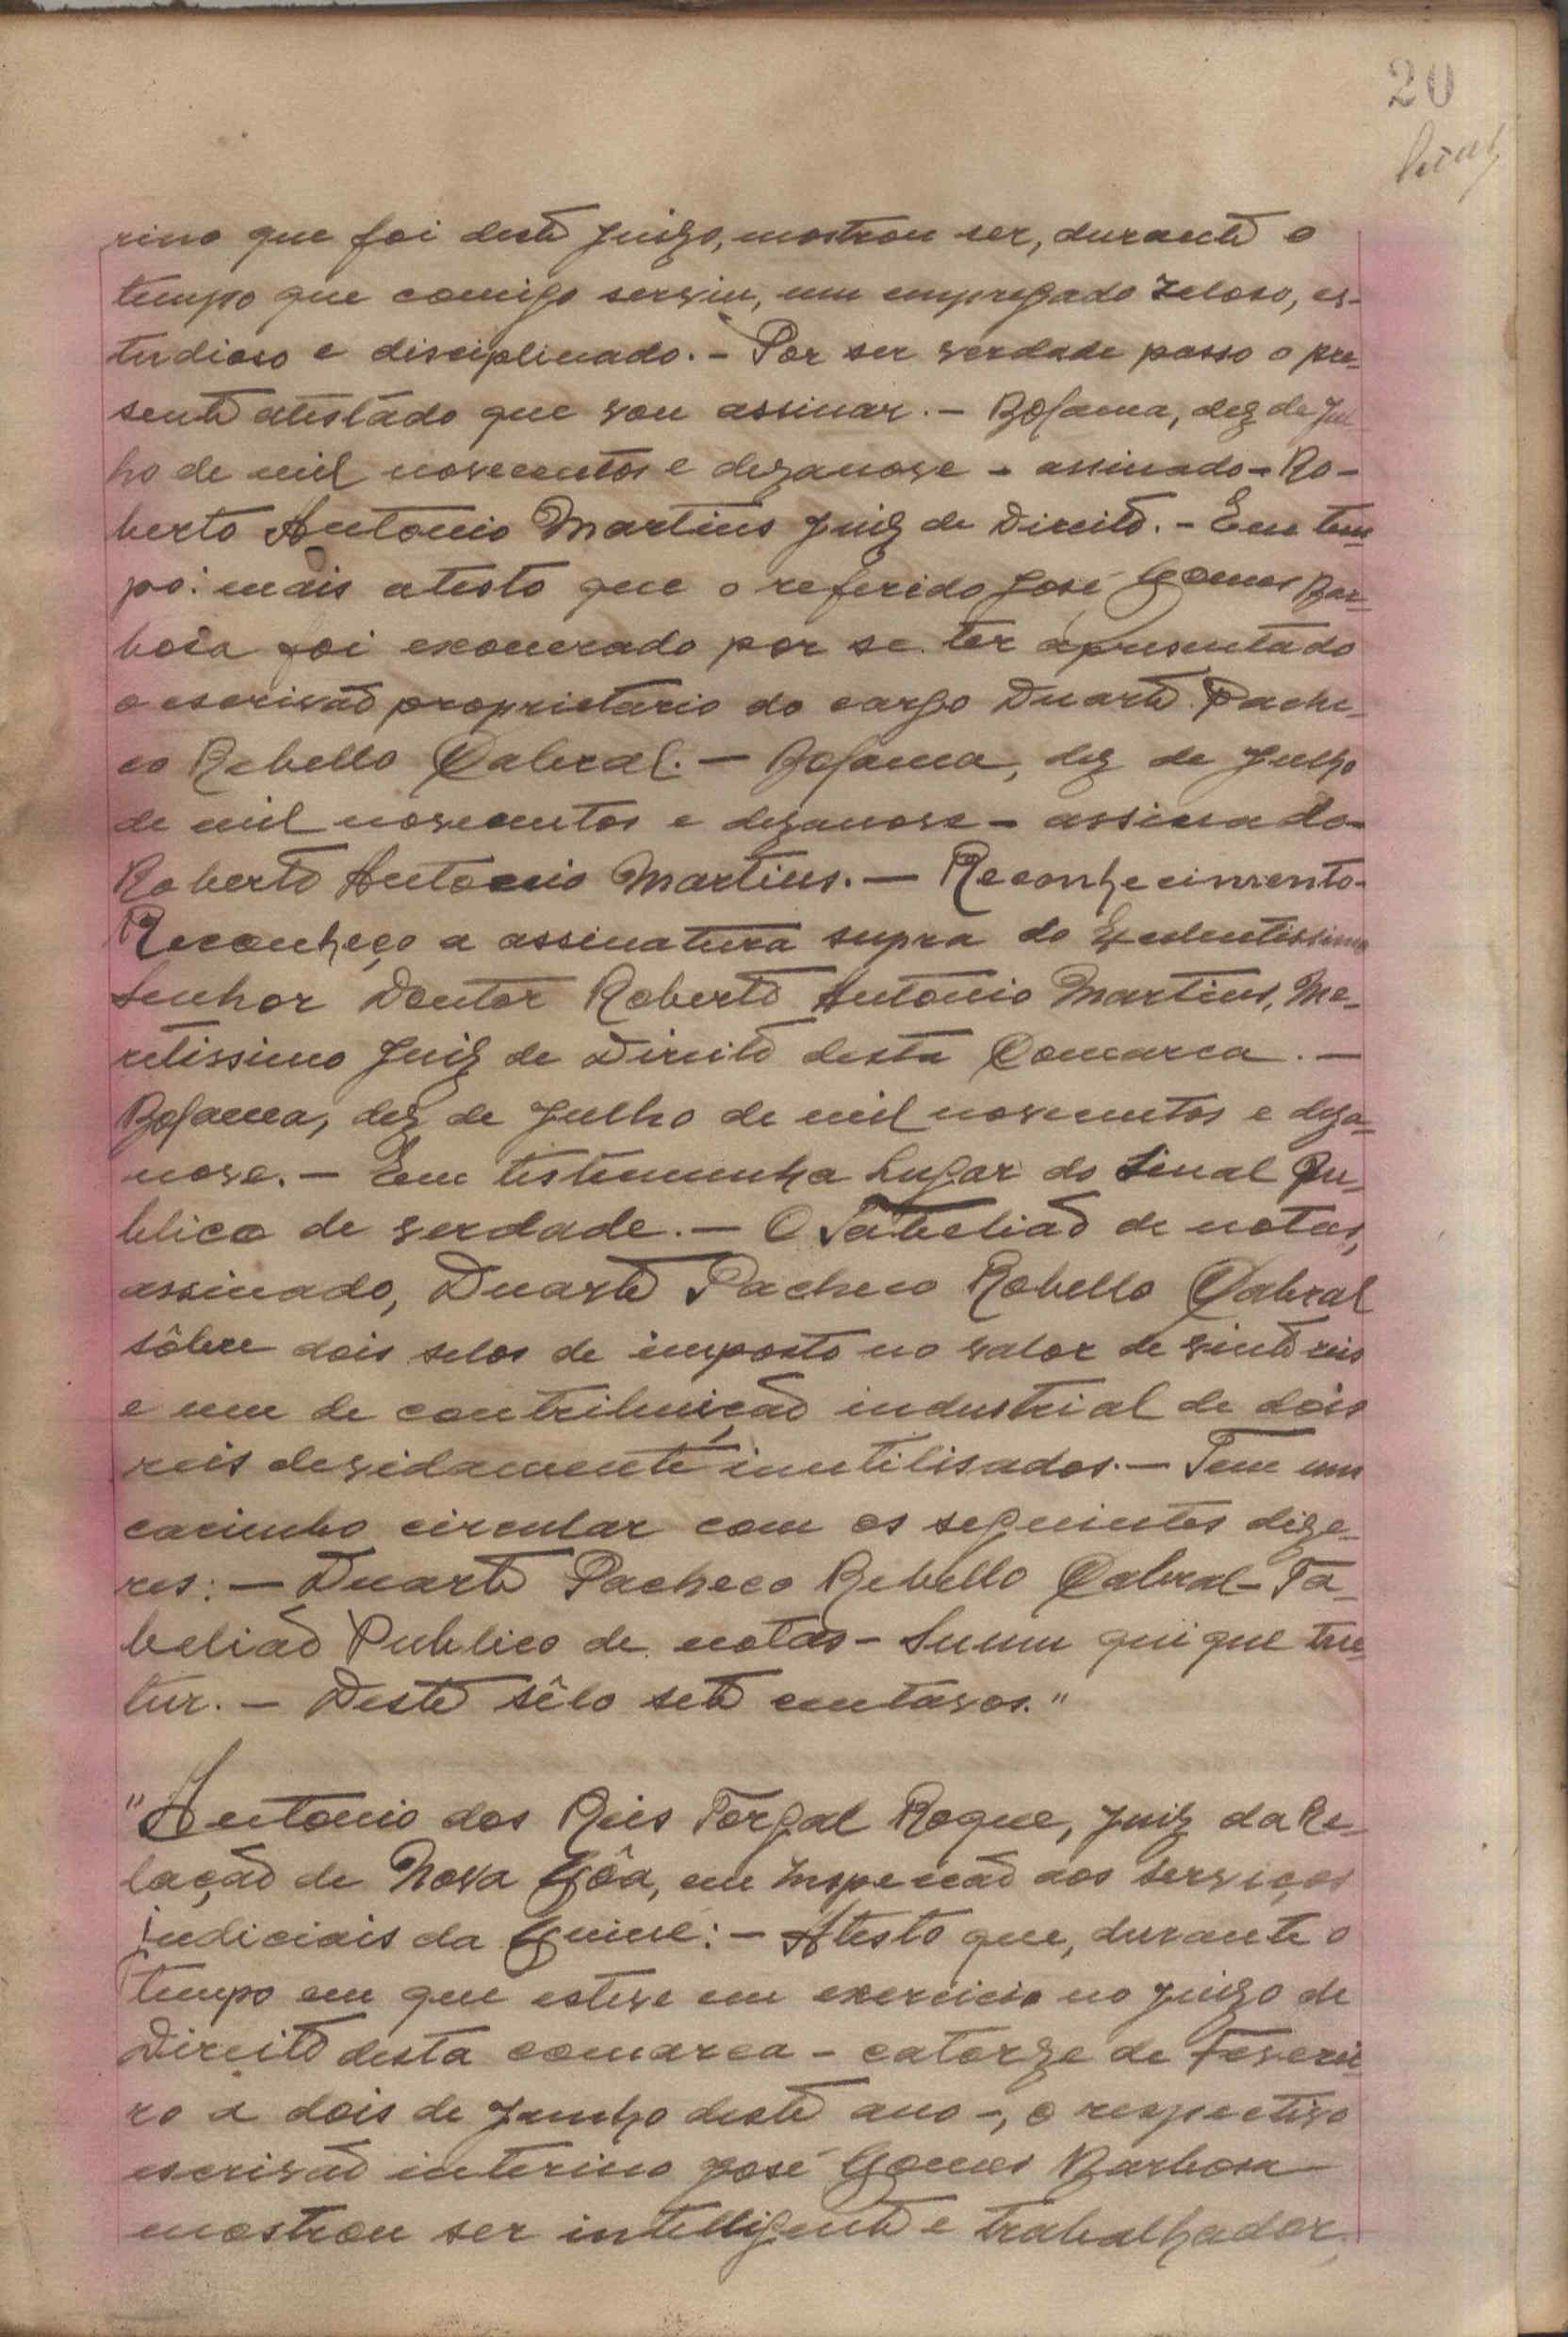 20
rino que foi deste Juizo, mostrou ser, durante o
tempo que comigo serviu, um empregado zeloso, es-
tudioso e disciplinado. - Por ser verdade passo o pre-
sente atestádo que vou assinar. - Bolama, dez de Jul
ho de mil novecentos e dezanove - assinado - Ro-
berto Antonio Martins Juiz de Direito. - Em tem
po: mais atesto que o referido José Gomes Bar-
bosa foi exonerado por se ter apresentado
o escrivão proprietário do cargo Duarte Pache-
co Rebello Cabral. - Bolama, dez de Julho
de mil novecentos e dezanove - assinado -
Roberto Antonio Martins. - Reconhecimento -
Reconheço a assinatura supra do
Senhor Doutor Roberto Antonio Martins, Me-
retissimo Juiz de Direito desta Comarca. -
Bolama, dez de Julho de mil novecentos e deza-
nove. - Em testemunha Lugar do Sinal Pu-
blico de verdade. - O Tabelião de notas,
assinado, Duarte Pacheco Rebello Cabral
sôbre dois selos de imposto no valor de vinte reis
e um de contribuição industrial de dois
reis devidamente inutilisados. - Tem um
carimbo circular com os seguintes dize-
res: - Duarte Pacheco Rebello Cabral - Ta-
belião Publico de notas - Suum quique tue
tur. - Deste sêlo sete centavos."
"Antonio dos Reis Torgal Roque, Juiz da Re-
lação de Nova Gôa, em Inspecção aos serviços
judiciais da Guiné: - Atesto que, durante o
tempo em que estive em exercicio no Juizo de
Direito desta comarca - catorze de Feverei
ro a dois de Junho deste ano -, o respectivo
escrivão interino José Gomes Barbosa
mostrou ser intelligente e trabalhador.